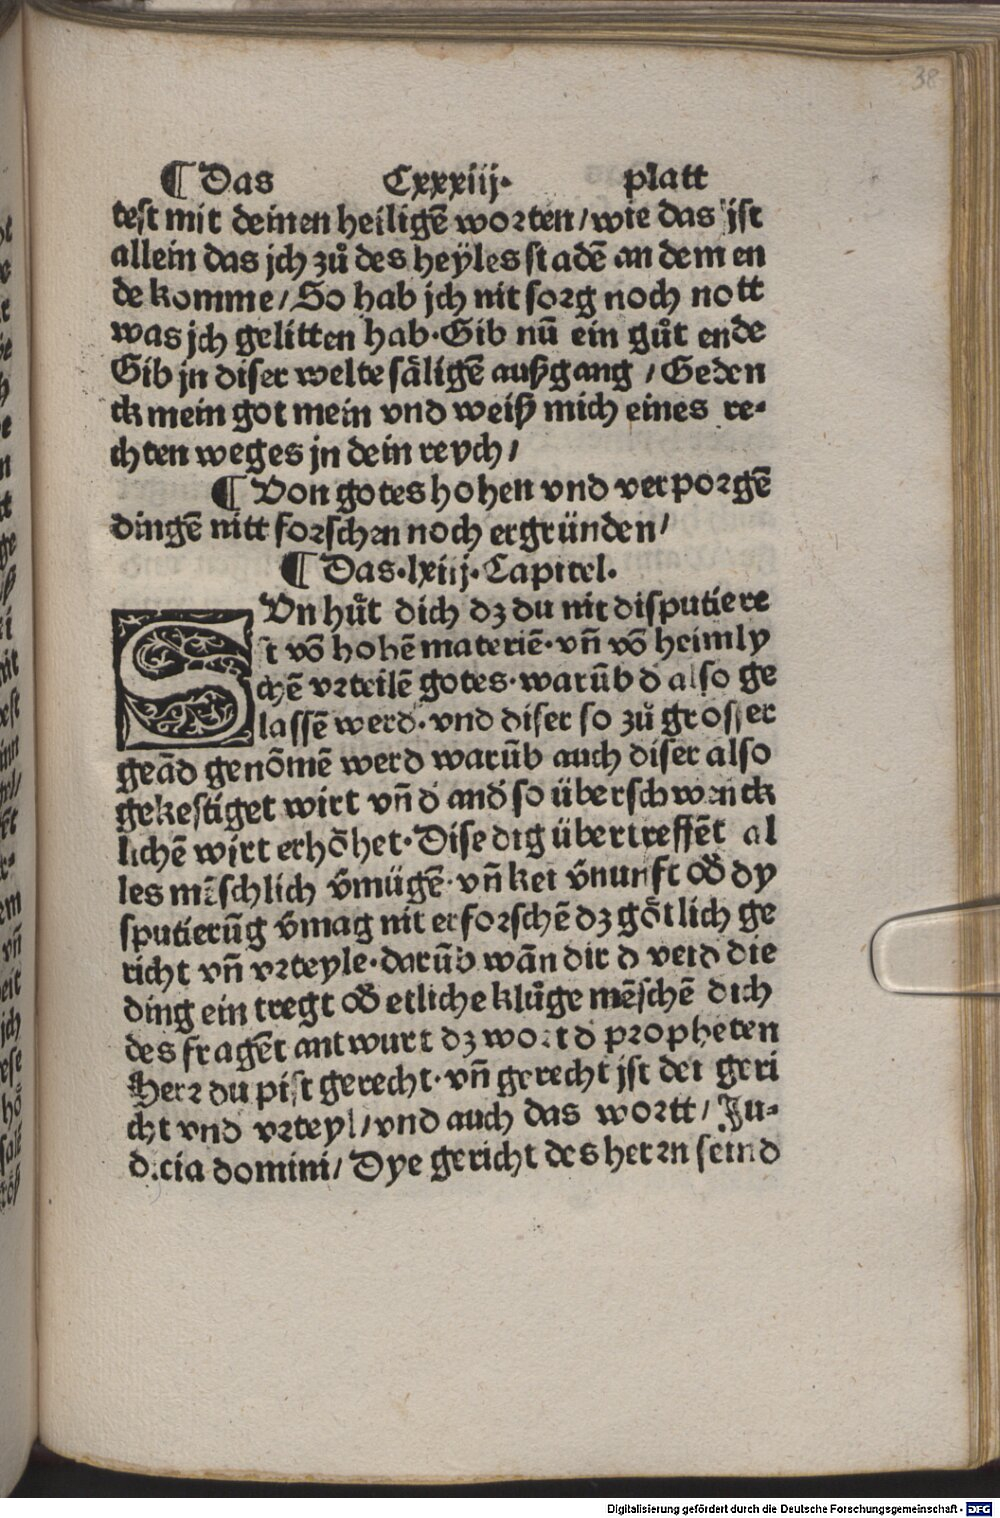 38
¶ Das Cxxxiij· platt
test mit deinen heiligē worten/wie das jst
allein das jch zů des heÿles stadē an dem en
de komme/So hab jch nit sorg noch nott
was jch gelitten hab·Gib nū ein gůt ende
Gib jn diser welte säligē außgang /Geden
ck mein got mein vnd weiß mich eines re-
chten weges jn dein reych/
¶ Von gotes hohen vnd verporgē
dingē nitt forschen noch ergründen/
¶ Das·lxiij·Capitel·
SUn hůt dich dz du nit disputiere
st vō hohē materiē·vn̄ vō heimly
chē vrteilē gotes·warūb d also ge
lassē werd·vnd diser so zů grosser
geād genōmē werd warūb auch diser also
gekestiget wirt vn̄ d and so überschwenck
lichē wirt erhöhet·Dise dīg übertreffēt al
les mēschlich v̄mügē·vn̄ kei v̄nunft od dy
sputierūg v̄mag nit erforschē dz götlich ge
richt vn̄ vrteyle·darūb wān dir d veid die
ding ein tregt od etliche klůge mēschē dich
des fragēt antwurt dz wort d propheten
Herr du pist gerecht·vn̄ gerecht jst dei geri
cht vnd vrteyl/vnd auch das wortt/Ju-
dicia domini/Dye gericht des herrn seind
Digitalisierung gefördert durch die Deutsche Forschungsgemeinschaft - DFG